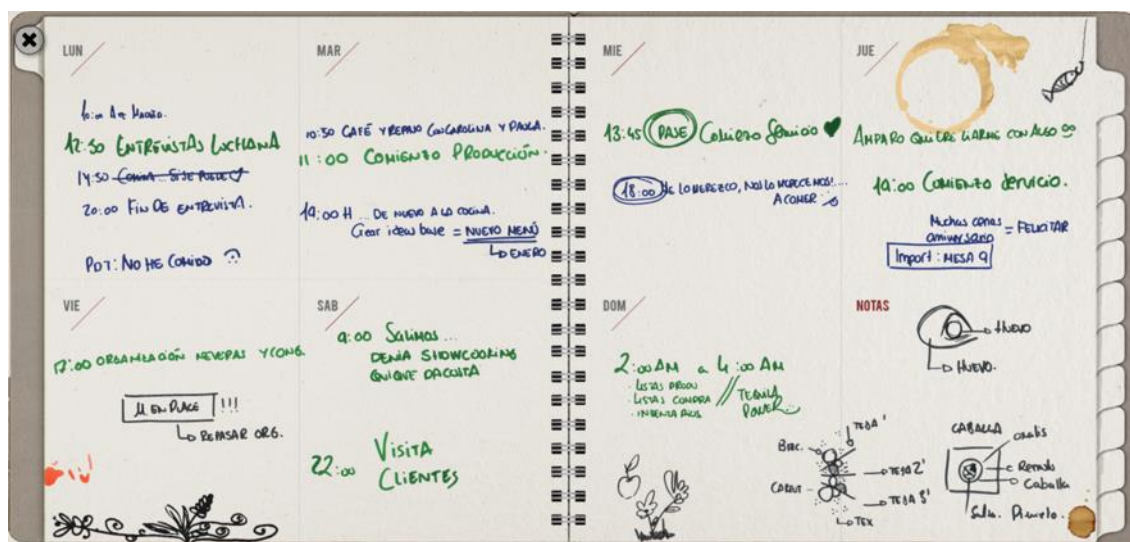 LUN
12:30 ENTREVISTAS LUCHANA
14:30 COMIDA... SI SE PUEDE
20:00 FIN DE ENTREVISTA.
PDT: NO HE COMIDO
MAR
10:30 CAFÉ Y REPASO CON CAROLINA Y PAULA.
11:00 COMIENZO PRODUCCIÓN.
19:00 H ... DE NUEVO A LA COCINA.
Crear ideas base = NUEVO MENÚ
ENERO
MIE
13:45 PASE Comienzo Servicio
18:00 ME LO MEREZCO, NOS LO MERECEMOS!...
A COMER
JUE
AMPARO QUIERE LIARME CON ALGO
19:00 COMIENZO SERVICIO.
Muchas cenas
aniversario = FELICITAR
Import: MESA 9
VIE
17:00 ORGANIZACIÓN NEVERAS Y CONG.
M EN PLACE !!!
REPASAR ORG.
SAB
9:00 SALIMOS...
DENIA SHOWCOOKING
QUIQUE DACOSTA
22:00 VISITA
CLIENTES
DOM
2:00 AM a 4:00 AM
· LISTAS PRODU
· LISTAS COMPRA
· INVENTARIOS
TEQUILA
POWER
TEJA 1'
TEJA 2'
TEJA 3'
TEX
NOTAS
HUEVO
HUEVO.
CABALLA
oxalis
Caballa